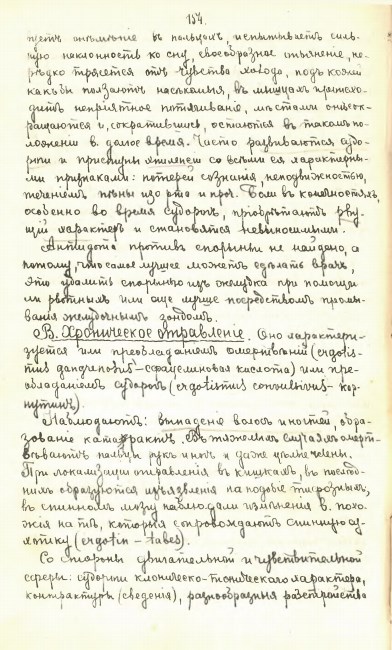 154.
пуетъ онѣмѣнiе въ пальцахъ, испытываетъ силь-
ную наклонность ко сну, своеобразное опьяненiе, не-
рѣдко трясется отъ чувства холода, подъ кожей
какъ бы ползаютъ насѣкомыя, въ мышцахъ происхо-
дитъ непрiятное потягиванiе, мѣстами онѣ со-
кращаются и, сократившись, остаются въ такомъ по-
ложенiи в. долгое время. Часто развиваются судо-
роги и приступы эпилепсiи со всѣми ея характерны-
ми признаками: потерей сознанiя, неподвижностью,
теченiемъ пѣны изо рта и проч. Боли въ конечностяхъ,
особенно во время судорогъ, прiобрѣтаютъ рву-
щiй характеръ и становятся невыносимыми.
Антидота противъ спорыньи не найдено, а
потому, что самое лучшее можетъ сдѣлать врачъ,
это удалить спорынью изъ желудка при помощи
или рвотныхъ или еще лучше посредствомъ промы-
ванiя желудочнымъ зондомъ.
В. Хроническое отравленiе. Оно характери-
зуется или преобладанiемъ омертвѣнiй (ergotis-
mus gangrenosus - сфацелиновая кислота) или пре-
обладанiемъ судорогъ (ergotismus convulsivus - кор-
нутинъ).
Наблюдаютъ: выпаденiе волосъ и ногтей, обра-
зованiе катарактъ. Въ тяжелыхъ случаяхъ омерт-
вѣваютъ пальцы рукъ и ногъ и даже цѣлые члены.
При локализацiи отравленiя въ кишкахъ, въ послѣд-
нихъ образуются изъязвленiя на подобiе тифозныхъ,
въ спинномъ мозгу наблюдали измѣненiя в. похо-
жiя на тѣ, которыя сопровождаютъ спинную су-
хотку (ergotin - tabes).
Со стороны двигательной и чувствительной
сферы: судороги клоническо-тоническаго характера,
контрактуры (сведенiя), разнообразныя разстройства